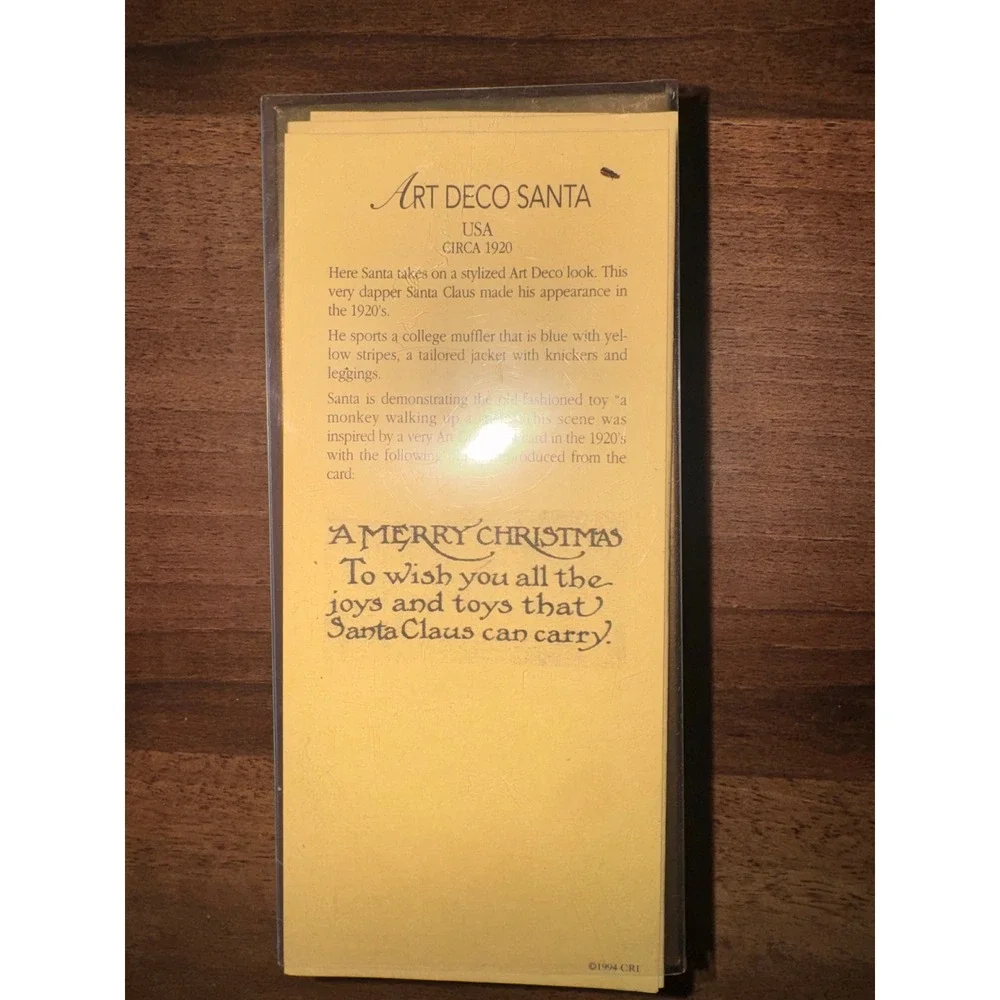 ART DECO SANTA
USA
CIRCA 1920
Here Santa takes on a stylized Art Deco look. This
very dapper Santa Claus made his appearance in
the 1920's.
He sports a college muffler that is blue with yel-
low stripes, a tailored jacket with knickers and
leggings.
Santa is demonstrating the old-fashioned toy "a
monkey walking up scene was
inspired by a very card in the 1920's
with the following from the
card:
A MERRY CHRISTMAS
To wish you all the
joys and toys that
Santa Claus can carry.
©1994 CRI